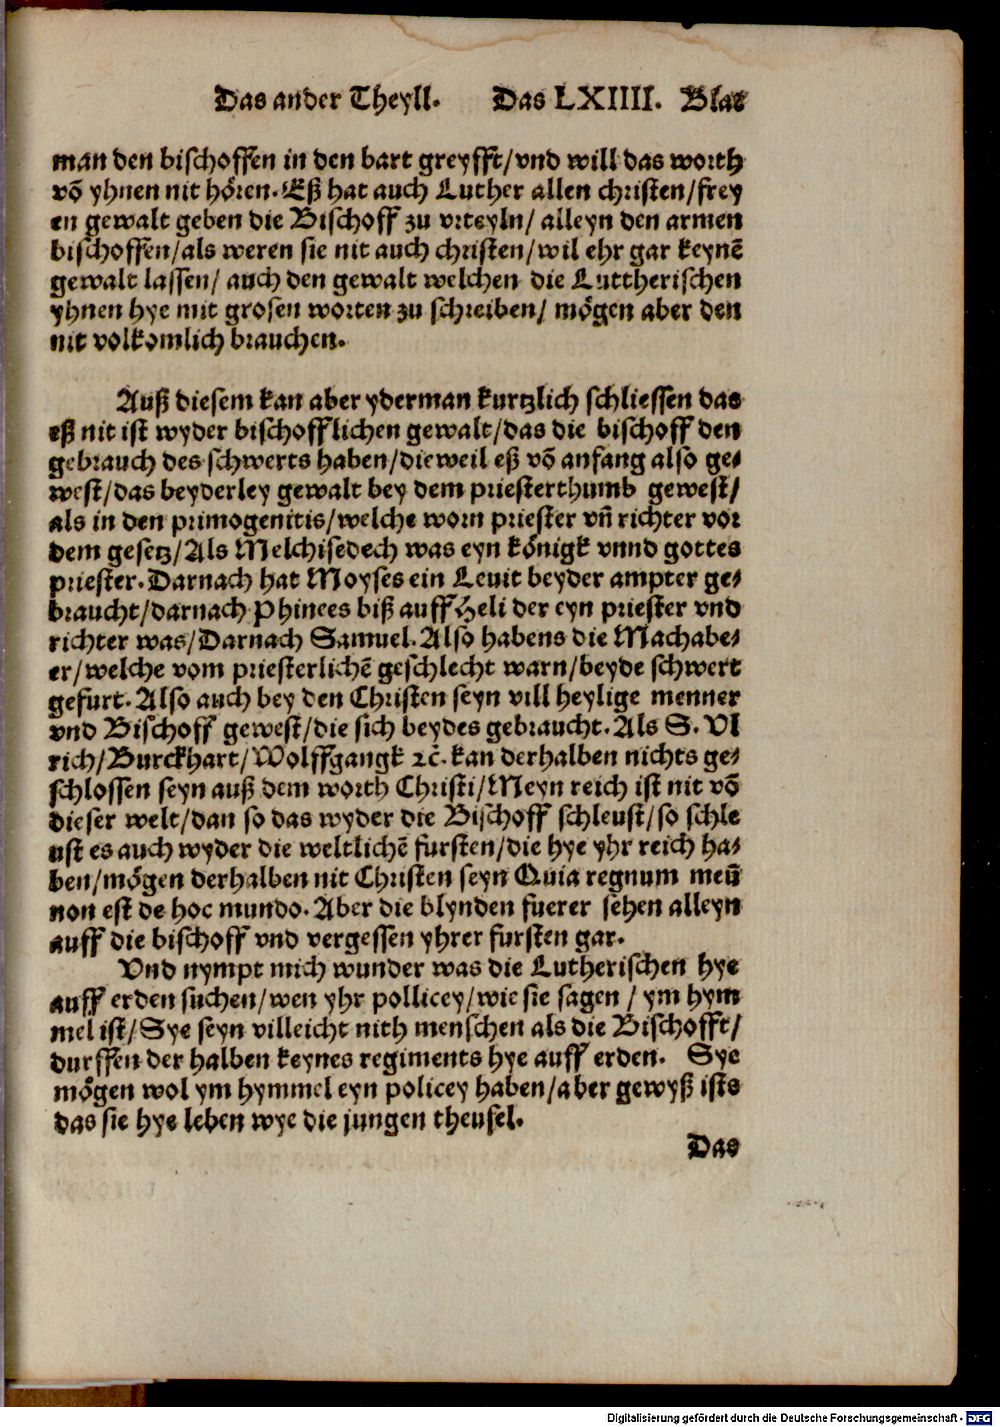 Das ander Theyll. Das LXIIII. Blat
man den bischoffen in den bart greyfft/vnd will das worth
võ yhnen nit hören. Eß hat auch Luther allen christen/frey
en gewalt geben die Bischoff zu vrteyln/ alleyn den armen
bischoffen/als weren sie nit auch christen/wil ehr gar keynẽ
gewalt lassen/ auch den gewalt welchen die Luttherischen
yhnen hye mit grosen worten zu schreiben/ mögen aber den
nit volkomlich brauchen.
Auß diesem kan aber yderman kurtzlich schliessen das
eß nit ist wyder bischofflichen gewalt/das die bischoff den
gebrauch des schwerts haben/dieweil eß võ anfang also ge⸗
west/das beyderley gewalt bey dem priesterthumb gewest/
als in den primogenitis/welche worn priester vñ richter vor
dem gesetz/Als Melchisedech was eyn königk vnnd gottes
priester. Darnach hat Moyses ein Leuit beyder ampter ge⸗
braucht/darnach Phinees biß auff Heli der eyn priester vnd
richter was/Darnach Samuel. Also habens die Machabe⸗
er/welche vom priesterlichẽ geschlecht warn/beyde schwert
gefurt. Also auch bey den Christen seyn vill heylige menner
vnd Bischoff gewest/die sich beydes gebraucht. Als S. Vl
rich/Burckhart/Wolffgangk ꝛc̃. kan derhalben nichts ge⸗
schlossen seyn auß dem worth Christi/Meyn reich ist nit võ
dieser welt/dan so das wyder die Bischoff schleust/so schle
ust es auch wyder die weltlichẽ fursten/die hye yhr reich ha⸗
ben/mögen derhalben nit Christen seyn Quia regnum meũ
non est de hoc mundo. Aber die blynden fuerer sehen alleyn
auff die bischoff vnd vergessen yhrer fursten gar.
Vnd nympt mich wunder was die Lutherischen hye
auff erden suchen/wen yhr pollicey/wie sie sagen / ym hym
mel ist/Sye seyn villeicht nith menschen als die Bischofft/
durffen der halben keynes regiments hye auff erden. Sye
mögen wol ym hymmel eyn policey haben/aber gewyß ists
das sie hye leben wye die jungen theufel.
Das
Digitalisierung gefördert durch die Deutsche Forschungsgemeinschaft - DFG